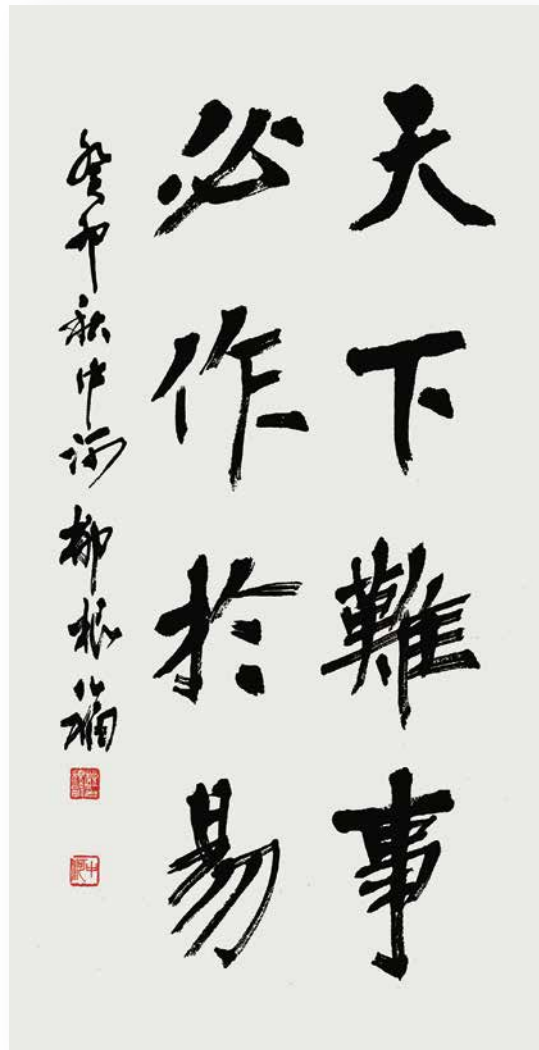 天下難事
必作於易
癸卯秋中河柳根福